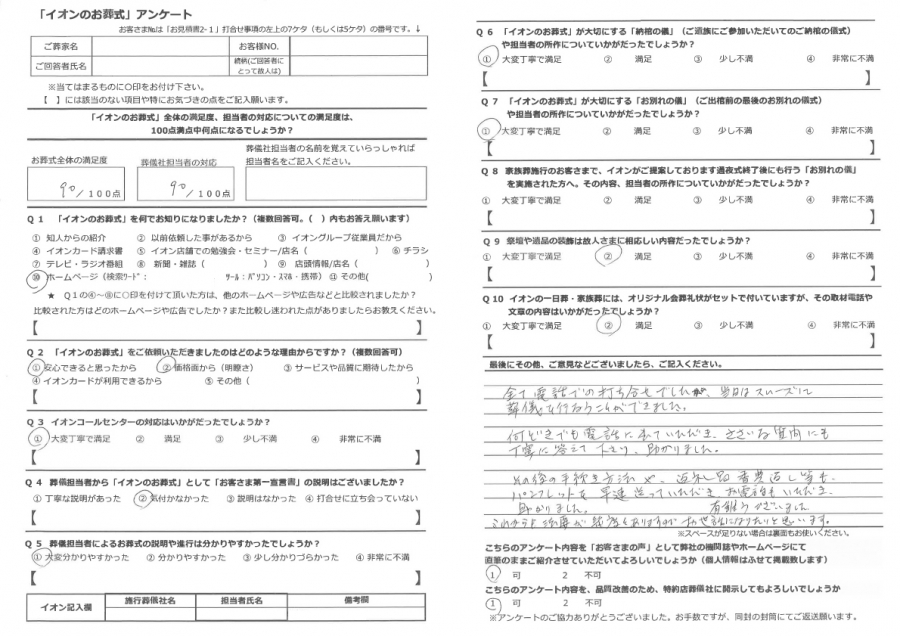 「イオンのお葬式」アンケート
お客さま№は「お見積書2-1」打合せ事項の左上の7ケタ（もしくは5ケタ）の番号です。↓
ご葬家名
お客様NO.
ご回答者氏名
続柄(ご回答者にとって故人は)
※当てはまるものに〇印をお付け下さい。
【　】には該当のない項目や特にお気づきの点をご記入願います。
「イオンのお葬式」全体の満足度、担当者の対応についての満足度は、
100点満点中何点になるでしょうか？
お葬式全体の満足度
葬儀社担当者の対応
葬儀社担当者の名前を覚えていらっしゃれば
担当者名をご記入ください。
90/100点
90/100点
Q1 「イオンのお葬式」を何でお知りになりましたか？（複数回答可。（　）内もお答え願います）
① 知人からの紹介 ② 以前依頼した事があるから ③ イオングループ従業員だから
④ イオンカード請求書 ⑤ イオン店舗での勉強会・セミナー/店名（　） ⑥ チラシ
⑦ テレビ・ラジオ番組 ⑧ 新聞・雑誌（　） ⑨ 店頭情報/店名（　）
⑩ ホームページ（検索ﾜｰﾄﾞ：　ﾂｰﾙ：ﾊﾟｿｺﾝ・ｽﾏﾎ・携帯） ⑪ その他(　)
★ Q1の④～⑩に〇印を付けて頂いた方は、他のホームページや広告などと比較されましたか？
比較された方はどのホームページや広告でしたか？また比較し迷われた点がありましたらお教えください。
【　】
Q2 「イオンのお葬式」をご依頼いただきましたのはどのような理由からですか？（複数回答可）
① 安心できると思ったから ② 価格面から（明瞭さ） ③ サービスや品質に期待したから
④ イオンカードが利用できるから ⑤ その他（　）
【　】
Q3 イオンコールセンターの対応はいかがだったでしょうか？
① 大変丁寧で満足 ② 満足 ③ 少し不満 ④ 非常に不満
【　】
Q4 葬儀担当者から「イオンのお葬式」として「お客さま第一宣言書」の説明はございましたか？
① 丁寧な説明があった ② 気付かなかった ③ 説明はなかった ④ 打合せに立ち会っていない
【　】
Q5 葬儀担当者によるお葬式の説明や進行は分かりやすかったでしょうか？
① 大変分かりやすかった ② 分かりやすかった ③ 少し分かりづらかった ④ 非常に不満
【　】
イオン記入欄
施行葬儀社名
担当者氏名
備考欄
Q6 「イオンのお葬式」が大切にする「納棺の儀」（ご遺族にご参加いただいてのご納棺の儀式）
や担当者の所作についていかがだったでしょうか？
① 大変丁寧で満足 ② 満足 ③ 少し不満 ④ 非常に不満
【　】
Q7 「イオンのお葬式」が大切にする「お別れの儀」（ご出棺前の最後のお別れの儀式）
や担当者の所作についていかがだったでしょうか？
① 大変丁寧で満足 ② 満足 ③ 少し不満 ④ 非常に不満
【　】
Q8 家族葬施行のお客さまで、イオンがご提案しております通夜式終了後にも行う「お別れの儀」
を実施された方へ。その内容、担当者の所作についていかがだったでしょうか？
① 大変丁寧で満足 ② 満足 ③ 少し不満 ④ 非常に不満
【　】
Q9 祭壇や遺品の装飾は故人さまに相応しい内容だったでしょうか？
① 大変丁寧で満足 ② 満足 ③ 少し不満 ④ 非常に不満
【　】
Q10 イオンの一日葬・家族葬には、オリジナル会葬礼状がセットで付いていますが、その取材電話や
文章の内容はいかがだったでしょうか？
① 大変丁寧で満足 ② 満足 ③ 少し不満 ④ 非常に不満
【　】
最後にその他、ご意見などございましたら、ご記入ください。
全て電話での打ち合せでしたが、当日はスムーズに
葬儀を行なうことができました。
何どきでも電話に出ていただき、ささいな質問にも
丁寧に答えて下さり、助かりました。
その後の手続き方法や、返礼品香典返し等も
パンフレットを早速送っていただき、お電話もいただき、
助かりました。 有難うございました
これからも法要が
お世話になりたいと思います。
※スペースが足りない場合は裏面もお使いください。
こちらのアンケート内容を「お客さまの声」として弊社の機関誌やホームページにて
直筆のままご紹介させていただいてよろしいでしょうか（個人情報はふせて掲載致します）
1 可 2 不可
こちらのアンケート内容を、品質改善のため、特約店葬儀社に開示してもよろしいでしょうか
1 可 2 不可
※アンケートのご協力ありがとうございました。お手数ですが、同封の封筒にてご返送願います。